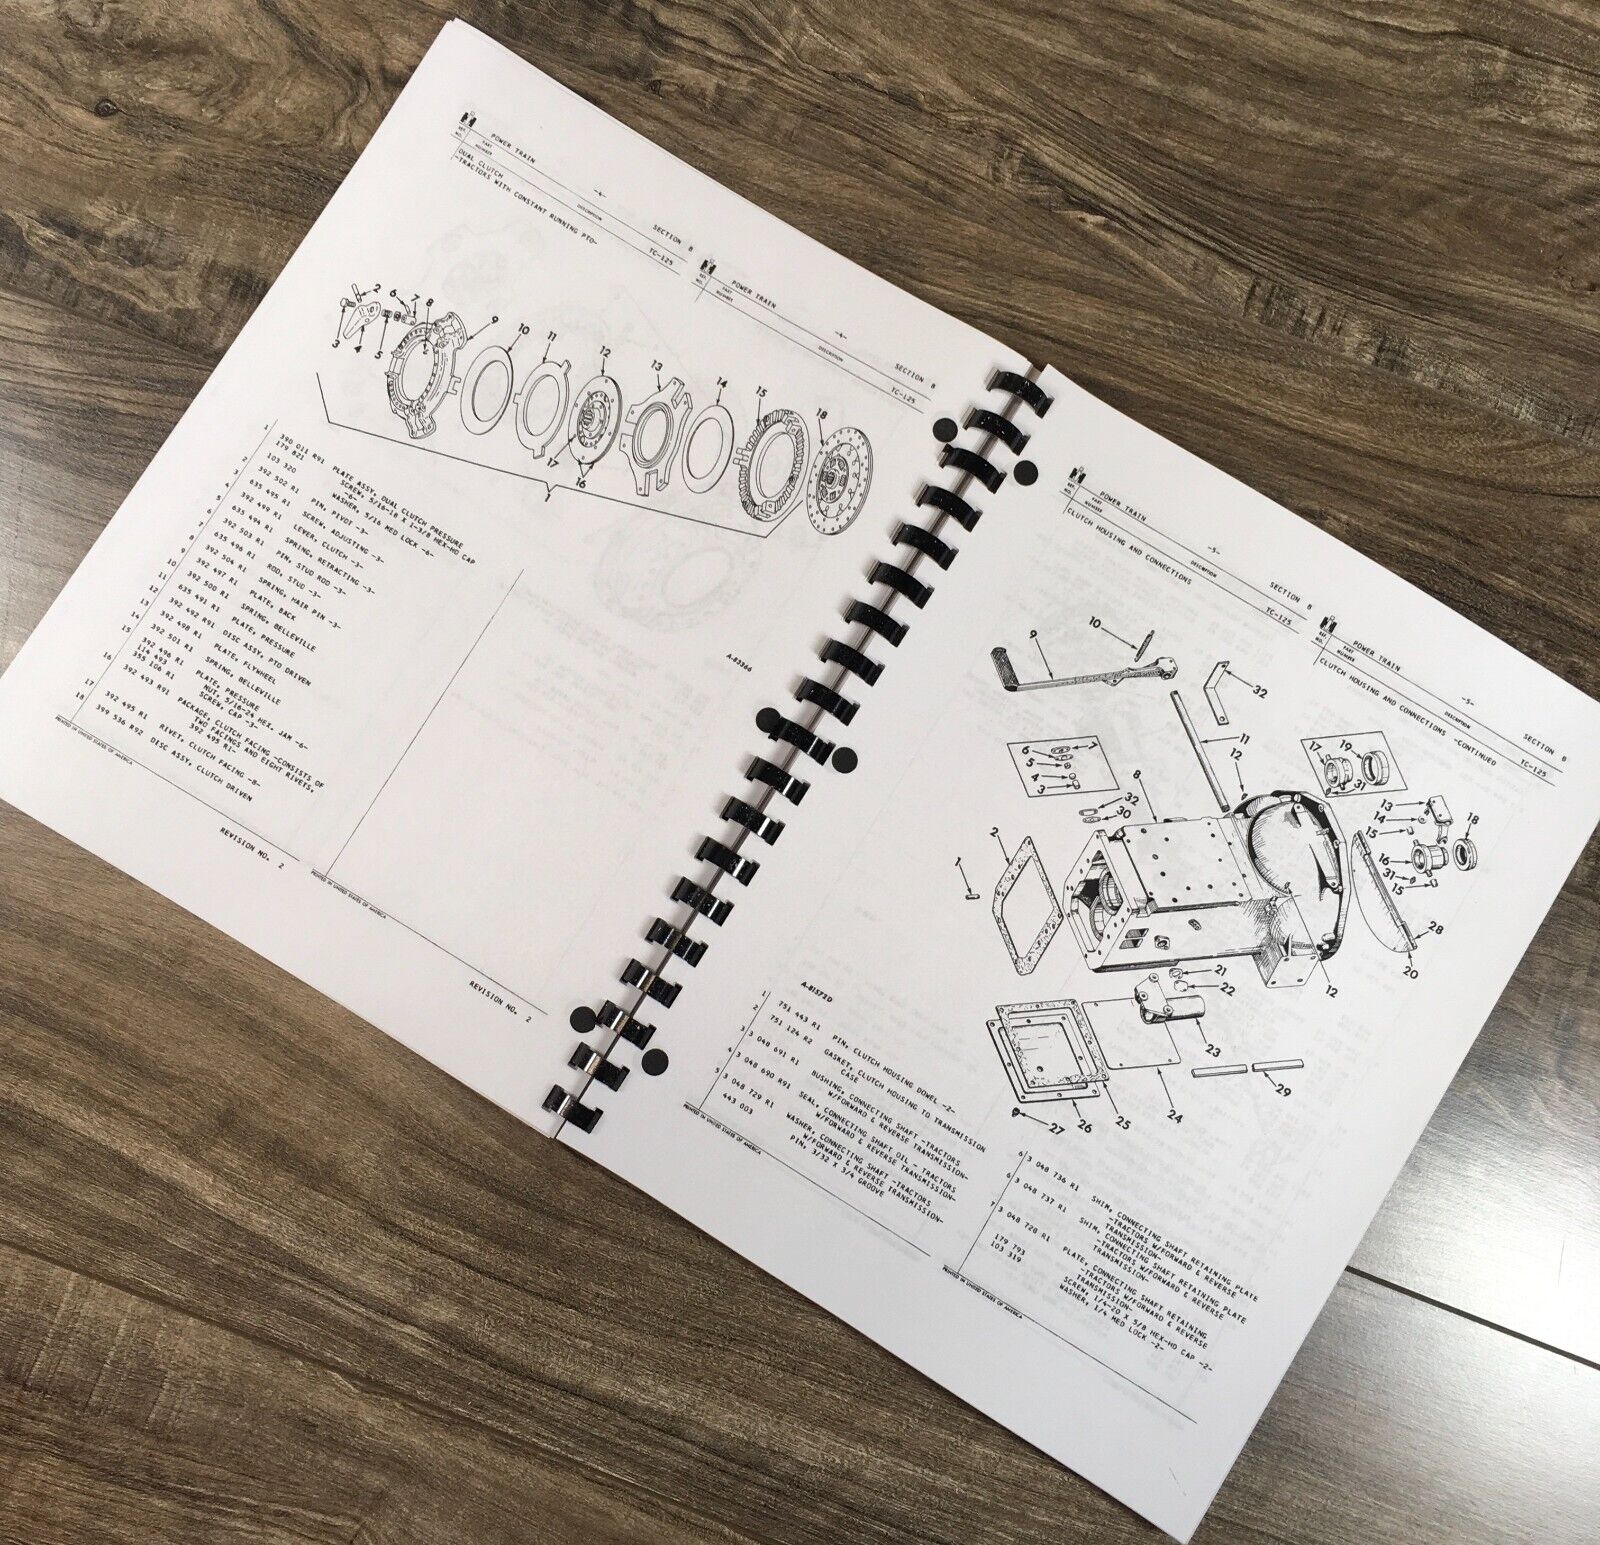 POWER TRAIN
-4-
SECTION B
REF. NO.
PART NUMBER
DESCRIPTION
TC-125
DUAL CLUTCH
-TRACTORS WITH CONSTANT RUNNING PTO-
POWER TRAIN
-4-
SECTION B
REF. NO.
PART NUMBER
DESCRIPTION
TC-125
2
6
7
8
9
10
11
12
13
14
15
18
3
4
5
17
16
1
A-82366
1 390 011 R91 PLATE ASSY, DUAL CLUTCH PRESSURE
179 821 SCREW, 5/16-18 X 1-3/8 HEX-HD CAP
-6-
103 320 WASHER, 5/16 MED LOCK -6-
2 392 502 R1 PIN, PIVOT -3-
3 635 495 R1 SCREW, ADJUSTING -3-
4 392 499 R1 LEVER, CLUTCH -3-
5 635 494 R1 SPRING, RETRACTING -3-
6 392 503 R1 PIN, STUD ROD -3-
7 635 496 R1 ROD, STUD -3-
8 392 504 R1 SPRING, HAIR PIN -3-
9 392 497 R1 PLATE, BACK
10 392 500 R1 SPRING, BELLEVILLE
11 635 491 R1 PLATE, PRESSURE
12 392 492 R91 DISC ASSY, PTO DRIVEN
13 392 498 R1 PLATE, FLYWHEEL
14 392 501 R1 SPRING, BELLEVILLE
15 392 496 R1 PLATE, PRESSURE
114 493 NUT, 5/16-24 HEX. JAM -6-
355 106 R1 SCREW, CAP -3-
16 392 493 R91 PACKAGE, CLUTCH FACING -CONSISTS OF
TWO FACINGS AND EIGHT RIVETS,
392 495 R1-
17 392 495 R1 RIVET, CLUTCH FACING -8-
18 399 536 R92 DISC ASSY, CLUTCH DRIVEN
PRINTED IN UNITED STATES OF AMERICA
REVISION NO. 2
PRINTED IN UNITED STATES OF AMERICA
REVISION NO. 2
POWER TRAIN
-5-
SECTION B
REF. NO.
PART NUMBER
DESCRIPTION
TC-125
CLUTCH HOUSING AND CONNECTIONS
POWER TRAIN
-5-
SECTION B
REF. NO.
PART NUMBER
DESCRIPTION
TC-125
CLUTCH HOUSING AND CONNECTIONS -CONTINUED
10
9
32
11
12
17
19
31
7
6
5
4
3
8
32
30
2
1
13
14
15
18
16
31
15
28
20
12
21
22
23
24
29
25
26
27
A-81572D
1 751 443 R1 PIN, CLUTCH HOUSING DOWEL -2-
2 751 124 R2 GASKET, CLUTCH HOUSING TO TRANSMISSION
CASE
3 3 048 691 R1 BUSHING, CONNECTING SHAFT -TRACTORS
W/FORWARD & REVERSE TRANSMISSION-
4 3 048 690 R91 SEAL, CONNECTING SHAFT OIL - TRACTORS
W/FORWARD & REVERSE TRANSMISSION-
5 3 048 729 R1 WASHER, CONNECTING SHAFT -TRACTORS
W/FORWARD & REVERSE TRANSMISSION-
443 003 PIN, 3/32 X 3/4 GROOVE
PRINTED IN UNITED STATES OF AMERICA
6 3 048 736 R1 SHIM, CONNECTING SHAFT RETAINING PLATE
-TRACTORS W/FORWARD & REVERSE
TRANSMISSION-
6 3 048 737 R1 SHIM, CONNECTING SHAFT RETAINING PLATE
-TRACTORS W/FORWARD & REVERSE
TRANSMISSION-
7 3 048 728 R1 PLATE, CONNECTING SHAFT RETAINING
-TRACTORS W/FORWARD & REVERSE
TRANSMISSION-
179 793 SCREW, 1/4-20 X 5/8 HEX-HD CAP -2-
103 319 WASHER, 1/4 MED LOCK -2-
PRINTED IN UNITED STATES OF AMERICA